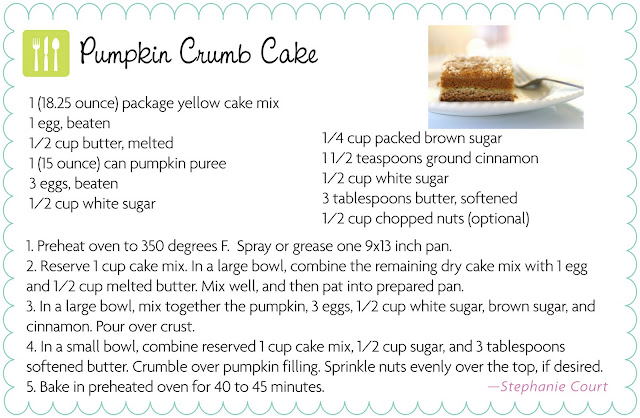 Pumpkin Crumb Cake
1 (18.25 ounce) package yellow cake mix
1 egg, beaten
1/2 cup butter, melted
1 (15 ounce) can pumpkin puree
3 eggs, beaten
1/2 cup white sugar
1/4 cup packed brown sugar
1 1/2 teaspoons ground cinnamon
1/2 cup white sugar
3 tablespoons butter, softened
1/2 cup chopped nuts (optional)
1. Preheat oven to 350 degrees F.  Spray or grease one 9x13 inch pan.
2. Reserve 1 cup cake mix. In a large bowl, combine the remaining dry cake mix with 1 egg
and 1/2 cup melted butter. Mix well, and then pat into prepared pan.
3. In a large bowl, mix together the pumpkin, 3 eggs, 1/2 cup white sugar, brown sugar, and
cinnamon. Pour over crust.
4. In a small bowl, combine reserved 1 cup cake mix, 1/2 cup sugar, and 3 tablespoons
softened butter. Crumble over pumpkin filling. Sprinkle nuts evenly over the top, if desired.
5. Bake in preheated oven for 40 to 45 minutes.
—Stephanie Court